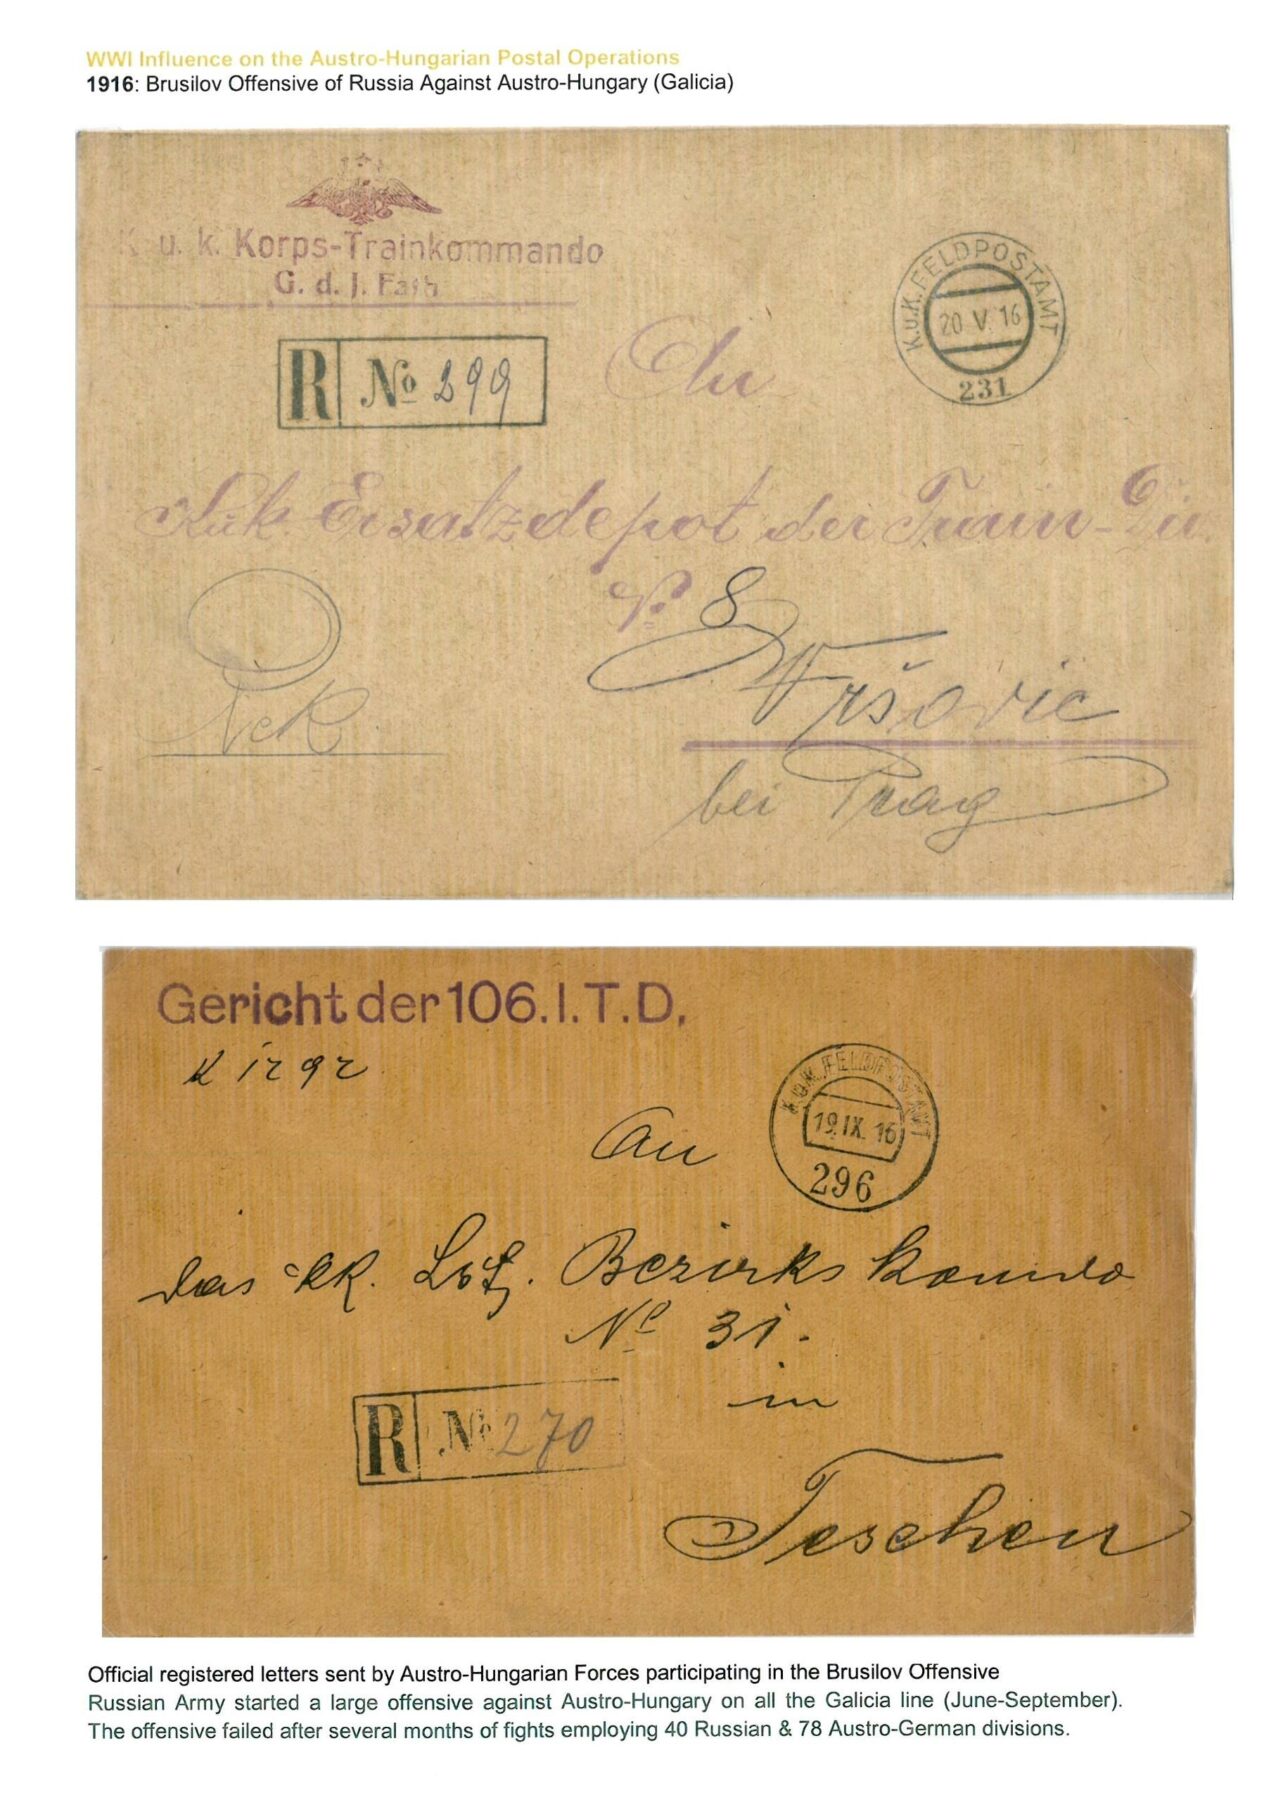 WWI Influence on the Austro-Hungarian Postal Operations
1916: Brusilov Offensive of Russia Against Austro-Hungary (Galicia)
K. u. k. Korps-Trainkommando
G. d. J. Fath
K.u.K. FELDPOSTAMT
20 V. 16
231
R No 299
An
K.u.k. Ersatzdepot der Train-Div.
No 8
Vršovic
bei Prag
Gericht der 106. I. T. D.
K.u.K. FELDPOSTAMT
19. IX. 16
296
An
das kk. Lst. Bezirks Komdo
No 31.
in
R No 270
Teschen
Official registered letters sent by Austro-Hungarian Forces participating in the Brusilov Offensive
Russian Army started a large offensive against Austro-Hungary on all the Galicia line (June-September).
The offensive failed after several months of fights employing 40 Russian & 78 Austro-German divisions.